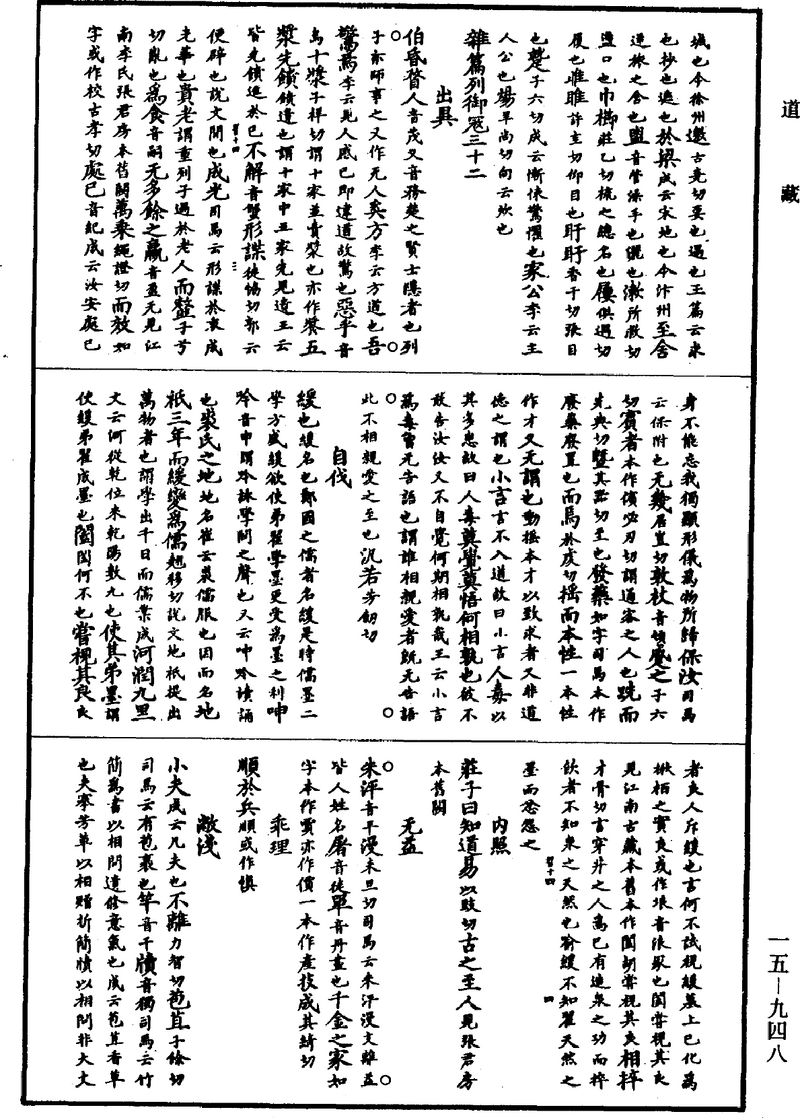 道藏
城也今徐州邀古堯切要也遇也玉篇云求
也抄也遮也於梁成云宋地也今汴州至舍
逆旅之舍也盥音管澡手也儷也漱所救切
盪口也巾櫛莊乙切梳之總名也屨俱遇切
履也睢睢許圭切仰目也盱盱香于切張目
也蹵子六切成云慚悚驚懼也家公李云主
人公也煬羊尚切向云炊也
雜篇列御寇三十二
出異
伯昏瞀人音茂又音務楚之賢士隱者也列
子亦師事之又作无人奚方李云方道也吾
驚焉李云見人感已即違道故驚也惡乎音
烏十漿子祥切謂十家並賣漿也亦作槳五
漿先饋饋遺也謂十家中五家先見遺王云
皆先饋進於已不解音蟹形諜徒協切郭云
便辟也說文間也成光司馬云形諜於衷成
光華也貴老謂重列子過於老人而𩐎子兮
切亂也為食音嗣无多餘之贏音盈元見江
南李氏張君房本舊闕萬乘繩證切而效如
字或作校古孝切處已音紀成云汝安處已
身不能忘我獨顯形儀萬物所歸保汝司馬
云保附也无幾居豈切敦杖音頓蹙之子六
切賓者本作儐必刃切謂通客之人也跣而
先典切曁其器切至也發藥如字司馬本作
廢藥廢置也而焉於虔切搖而本性一本性
作才又无謂也動搖本才以致求者又非道
德之謂也小言言不入道故曰小言人毒以
其多患故曰人毒莫覺莫悟何相孰也彼不
敢告汝汝又不自覺何期相孰哉王云小言
為毒曽无告語也謂誰相親愛者既无告語
此不相親愛之至也汎若芳劒切
自伐
緩也緩名也鄭國之儒者名緩是時儒墨二
學方盛緩欲使弟翟學墨更受為墨之利呻
吟音申謂吟詠學問之聲也又云呻吟讀誦
也裘氏之地地名崔云裘儒服也因而名地
祇三年而緩變為儒翹移切說文地祇提出
萬物者也謂學出千日而儒業成河潤九里
文云何從乾位来乾陽數九也使其弟墨謂
使緩弟翟成墨也闔闔何不也嘗視其良良
者良人斥緩也言何不試視緩墓上已化為
楸栢之實良或作埌音浪冢也闔嘗視其良
見江南古藏本舊本作闔胡嘗視其良相捽
才骨切言穿井之人為已有造泉之功而捽
飲者不知泉之天然也喻緩不知翟天然之
墨而忿怨之
内照
莊子曰知道易以豉切古之至人見張君房
本舊闕
无益
朱泙音平漫未旦切司馬云朱泙漫支離益
皆人姓名屠音徒單音丹盡也千金之家如
字本作賈亦作價一本作産技成其綺切
乖理
順於兵順或作愼
敝淺
小夫成云凡夫也不離力智切苞苴子餘切
司馬云有苞裹也竿音干牘音獨司馬云竹
簡為書以相問遺修意氣也成云苞苴香草
也夫搴芳草以相贈折簡牘以相問非大丈
一五—九四八